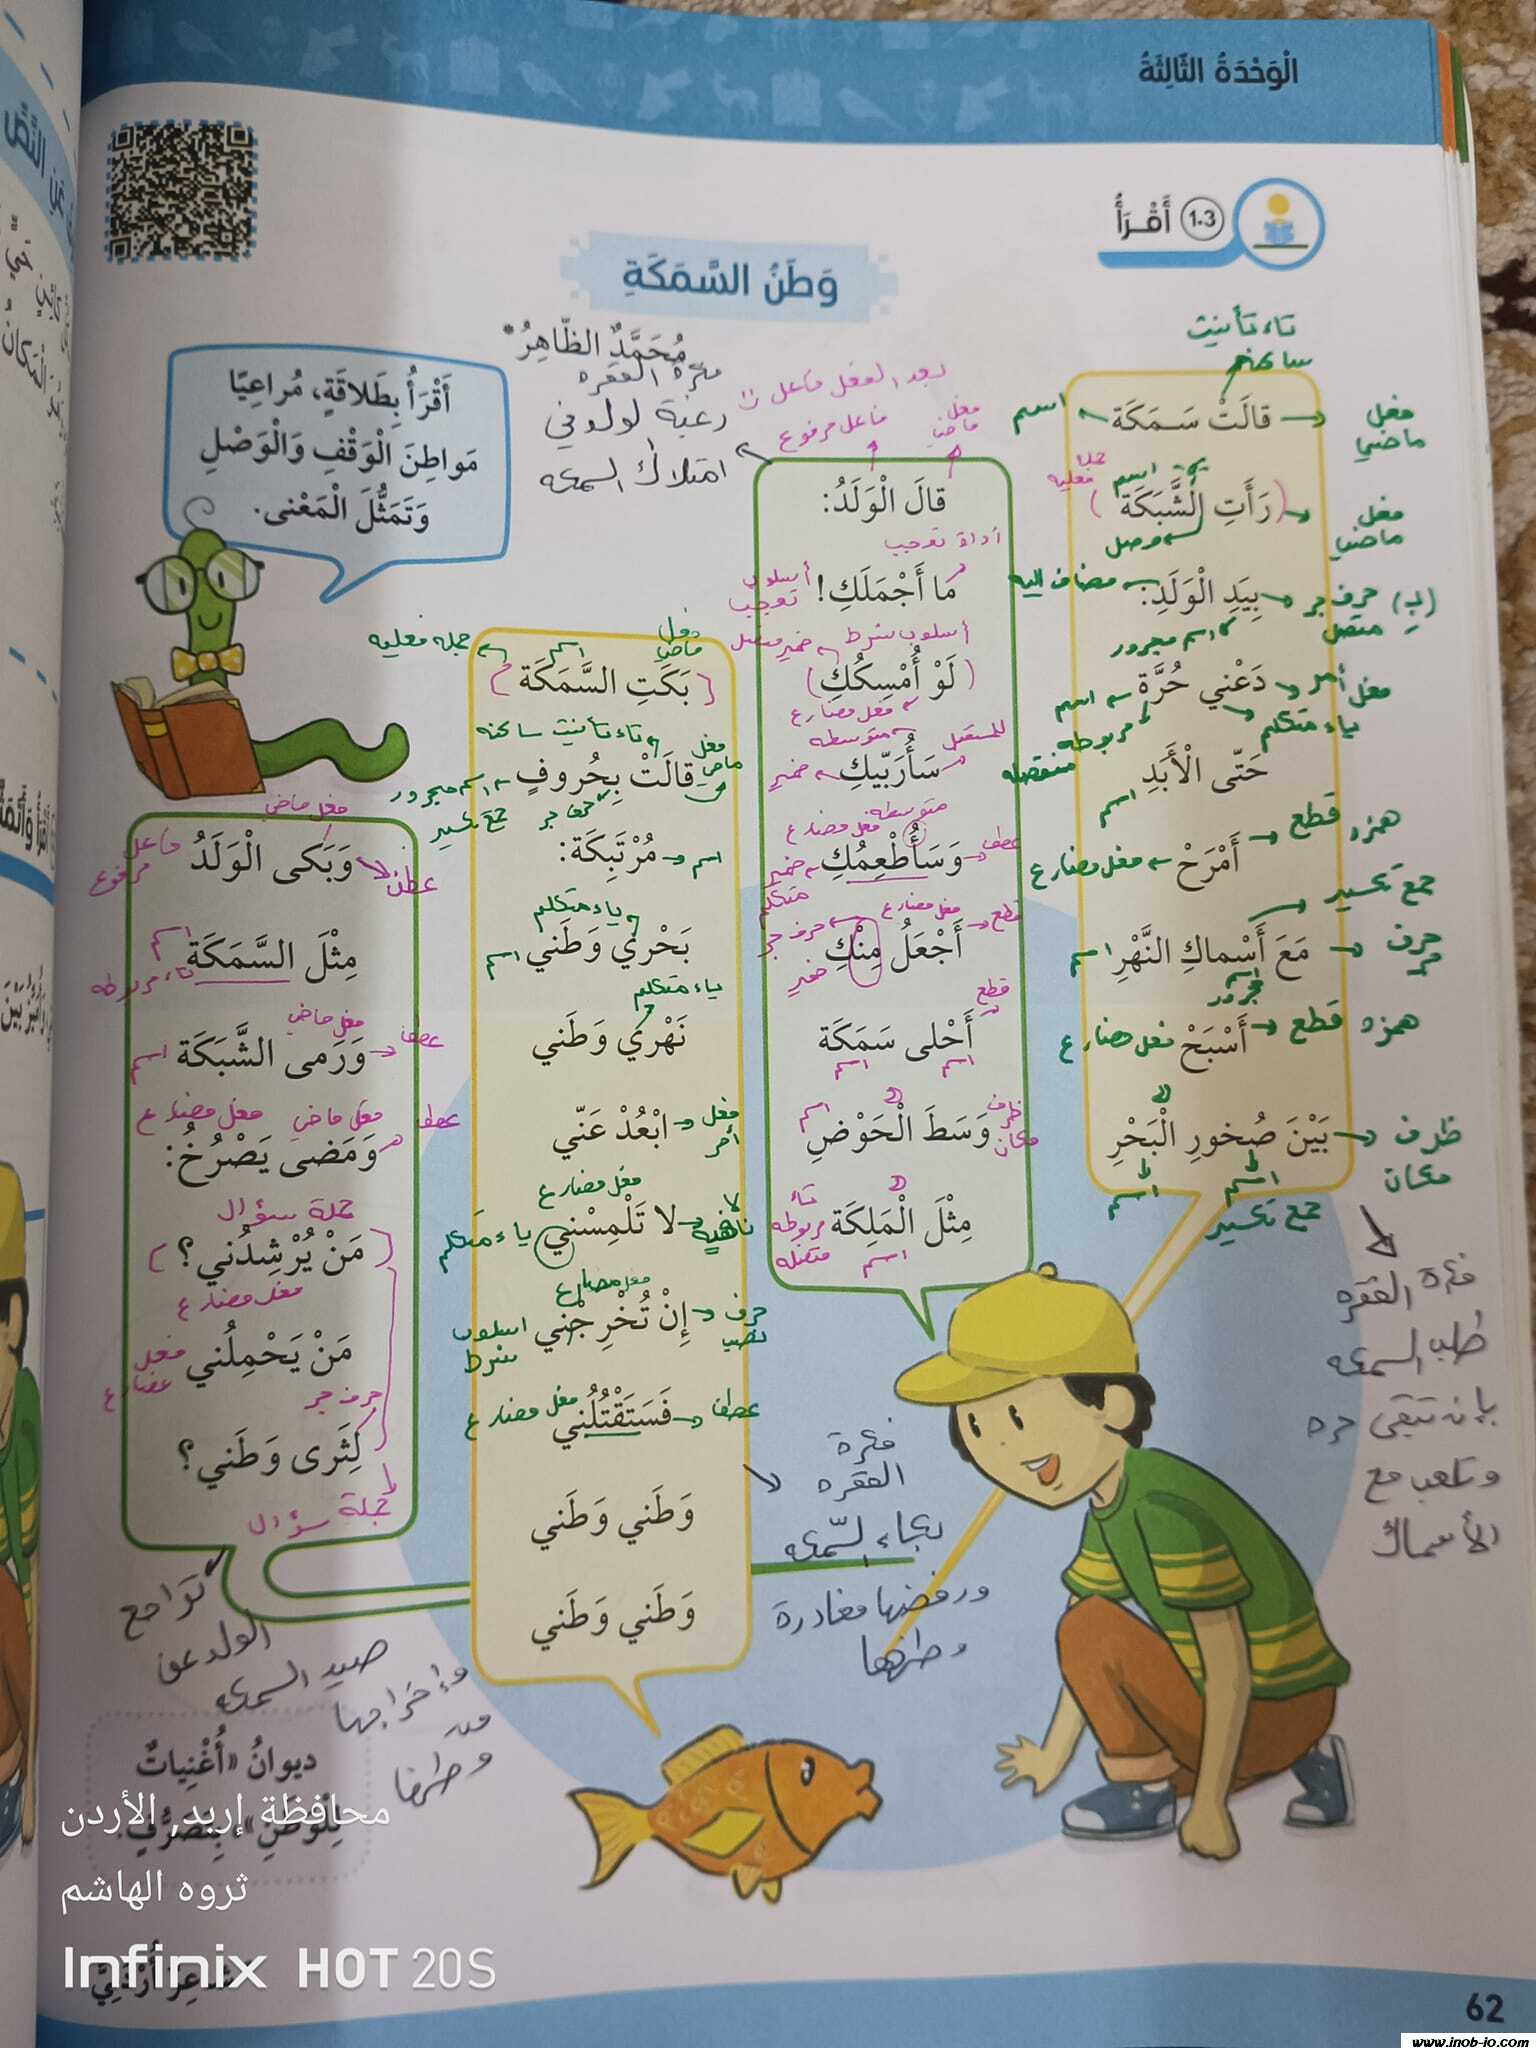 الْوَحْدَةُ الثّالِثَةُ
1.3 أَقْرَأُ
وَطَنُ السَّمَكَةِ
مُحَمَّدٌ الظّاهِرُ*
أَقْرَأُ بِطَلاقَةٍ، مُراعِيًا
مَواطِنَ الْوَقْفِ وَالْوَصْلِ
وَتَمَثُّلَ الْمَعْنى.
تاء تأنيث
ساكنه
فعل ماضي
اسم
قالَتْ سَمَكَة
جملة فعليه
اسم
فعل ماضي
(رَأَتِ الشَّبَكَة)
وصل
بِيَدِ الْوَلَدِ:
(بِ) حرف جر متصل
مضاف اليه
اسم مجرور
دَعْني حُرَّة
فعل أمر
اسم
ياء متكلم
مربوطه منفصله
حَتّى الْأَبَدِ
اسم
أَمْرَحْ
همزه قطع
فعل مضارع
جمع تكسير
مَعَ أَسْماكِ النَّهْرِ
حرف جر
اسم
اسم مجرور
أَسْبَحْ
همزه قطع
فعل مضارع
بَيْنَ صُخورِ الْبَحْرِ
ظرف مكان
اسم
اسم
جمع تكسير
فكرة الفقره
طلب السمكه
بإن تبقى حره
وتلعب مع
الأسماك
فكرة الفقره
رغبة الولد في
امتلاك السمكه
بعد الفعل فاعل
فاعل مرفوع
فعل ماضي
قالَ الْوَلَدُ:
أداة تعجب
مَا أَجْمَلَكِ!
أسلوب تعجب
أسلوب شرط
ضمير متصل
(لَوْ أُمْسِكُكِ)
فعل مضارع
متوسطه
للمستقبل
سَأُرَبّيكِ
ضمير
متوسطه
فعل مضارع
عطف
وَسَأُطْعِمُكِ
ضمير متكلم
فعل مضارع
قطع
حرف جر
أَجْعَلُ مِنْكِ
ضمير
قطع
أَحْلى سَمَكَة
اسم
اسم
ظرف مكان
اسم
وَسَطَ الْحَوْضِ
مِثْلَ الْمَلِكَة
تاء مربوطه متصله
اسم
جمله فعليه
اسم
فعل ماضي
(بَكَتِ السَّمَكَة)
تاء تأنيث ساكنه
فعل ماضي
قالَتْ بِحُروفٍ
اسم مجرور
حرف جر
جمع تكسير
مُرْتَبِكَة:
اسم
ياء متكلم
بَحْري وَطَني
اسم
ياء متكلم
نَهْري وَطَني
ابْعُدْ عَنّي
فعل أمر
فعل مضارع
لا تَلْمِسْني
لا ناهيه
ياء متكلم
فعل مضارع
إِنْ تُخْرِجْني
حرف نصب
اسلوب شرط
فَسَتَقْتُلُني
عطف
فعل مضارع
وَطَني وَطَني
وَطَني وَطَني
فكرة
الفقره
بكاء السّمكه
ورفضها مغادرة
وطنها
فعل ماضي
وَبَكى الْوَلَدُ
فاعل مرفوع
عطف
مِثْلَ السَّمَكَة
اسم
تاء مربوطه
فعل ماضي
عطف
وَرَمى الشَّبَكَة
اسم
عطف
فعل ماضي
فعل مضارع
وَمَضى يَصْرُخُ:
جملة سؤال
(مَنْ يُرْشِدُني؟)
فعل مضارع
مَنْ يَحْمِلُني
فعل مضارع
حرف جر
لِثَرى وَطَني؟
جملة سؤال
تراجع
الولد عن
صيد السمكه
وإخراجها
من
وطنها
ديوانُ «أُغْنِياتٌ
لِلْوَطَنِ» بِتَصَرُّفٍ.
شاعِرٌ أُرْدُنِيٌّ
محافظة إربد, الأردن
ثروه الهاشم
Infinix HOT 20S
62
www.jnob-jo.com